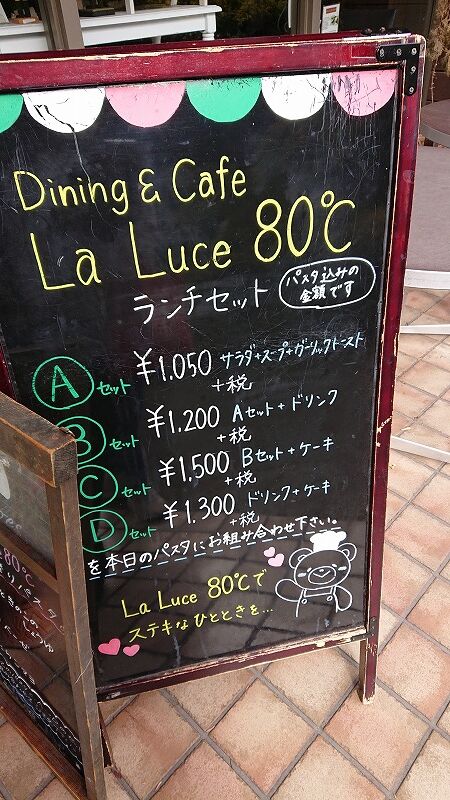 Dining & Cafe
La Luce 80℃
ランチセット
パスタ込みの
金額です
Aセット ¥1.050 サラダ+スープ+ガーリックトースト
+税
Bセット ¥1.200 Aセット+ドリンク
+税
Cセット ¥1.500 Bセット+ケーキ
+税
Dセット ¥1.300 ドリンク+ケーキ
+税
を本日のパスタにお組み合わせ下さい。
La Luce 80℃で
ステキなひとときを...
80℃